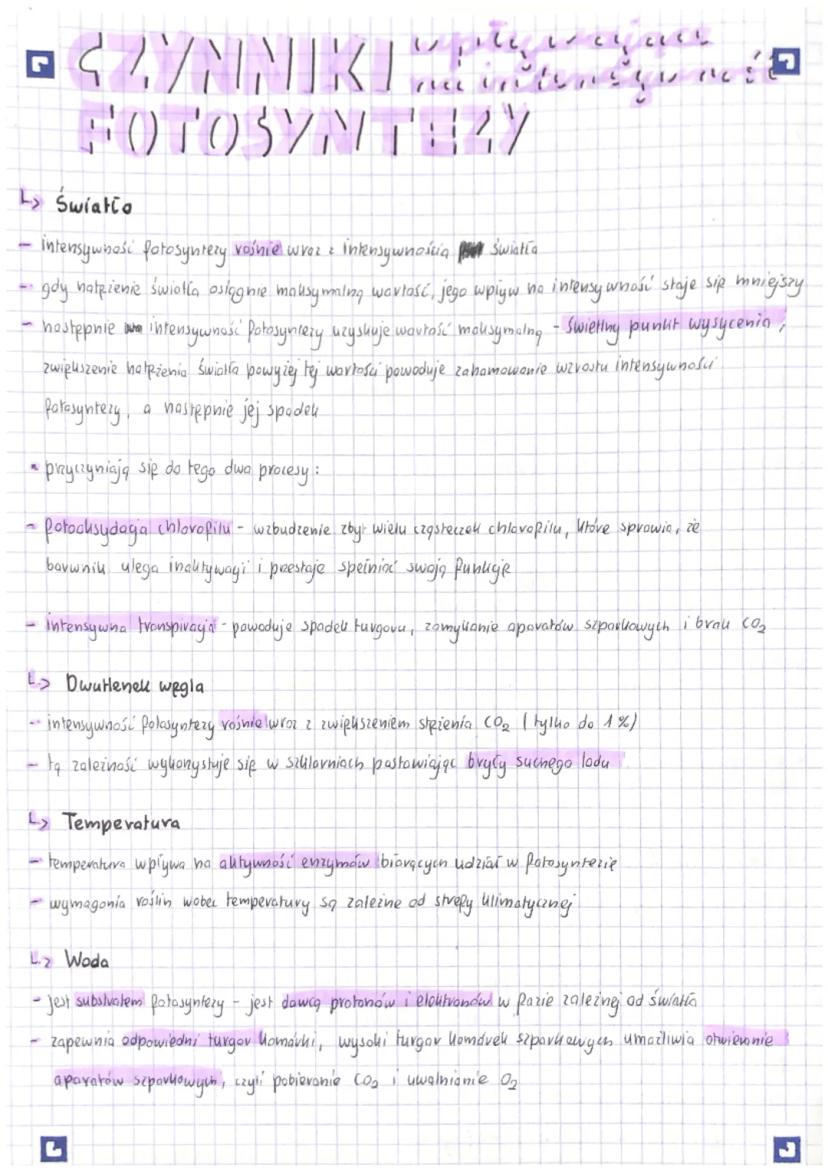 CZYNNIKI wpływające
na intensywność
FOTOSYNTEZY
↳ Światło
- intensywność fotosyntezy rośnie wraz z intensywnością światła
- gdy natężenie światła osiągnie maksymalną wartość, jego wpływ na intensywność staje się mniejszy
- następnie intensywność fotosyntezy uzyskuje wartość maksymalną - świetlny punkt wysycenia,
zwiększenie natężenia światła powyżej tej wartości powoduje zahamowanie wzrostu intensywności
fotosyntezy, a następnie jej spadek
• przyczyniają się do tego dwa procesy:
- fotooksydacja chlorofilu - wzbudzenie zbyt wielu cząsteczek chlorofilu, które sprawia, że
barwnik ulega inaktywacji i przestaje spełniać swoją funkcję
- intensywna transpiracja - powoduje spadek turgoru, zamykanie aparatów szparkowych i brak CO₂
↳ Dwutlenek węgla
- intensywność fotosyntezy rośnie wraz z zwiększeniem stężenia CO₂ (tylko do 1%)
- tą zależność wykorzystuje się w szklarniach pastawiając bryły suchego lodu
↳ Temperatura
- temperatura wpływa na aktywność enzymów biorących udział w fotosyntezie
- wymagania roślin wobec temperatury są zależne od strefy klimatycznej
↳ Woda
- jest substratem fotosyntezy - jest dawcą protonów i elektronów w fazie zależnej od światła
- zapewnia odpowiedni turgor komórki, wysoki turgor komórek szparkowych umożliwia otwieranie
aparatów szparkowych, czyli pobieranie CO₂ i uwalnianie O₂